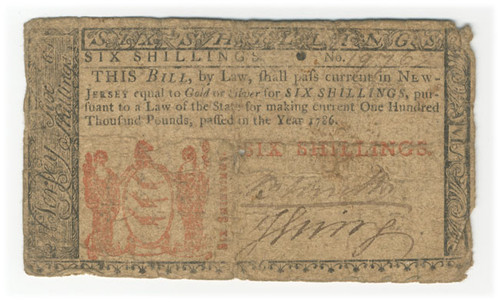 SIX SHILLINGS
SIX SHILLINGS. No. 1976
THIS BILL, by Law, shall pass current in NEW-
JERSEY equal to Gold or Silver for SIX SHILLINGS, pur-
suant to a Law of the State for making current One Hundred
Thousand Pounds, passed in the Year 1786.
SIX SHILLINGS.
Six Shillings.
Jersey Six
Shillings.